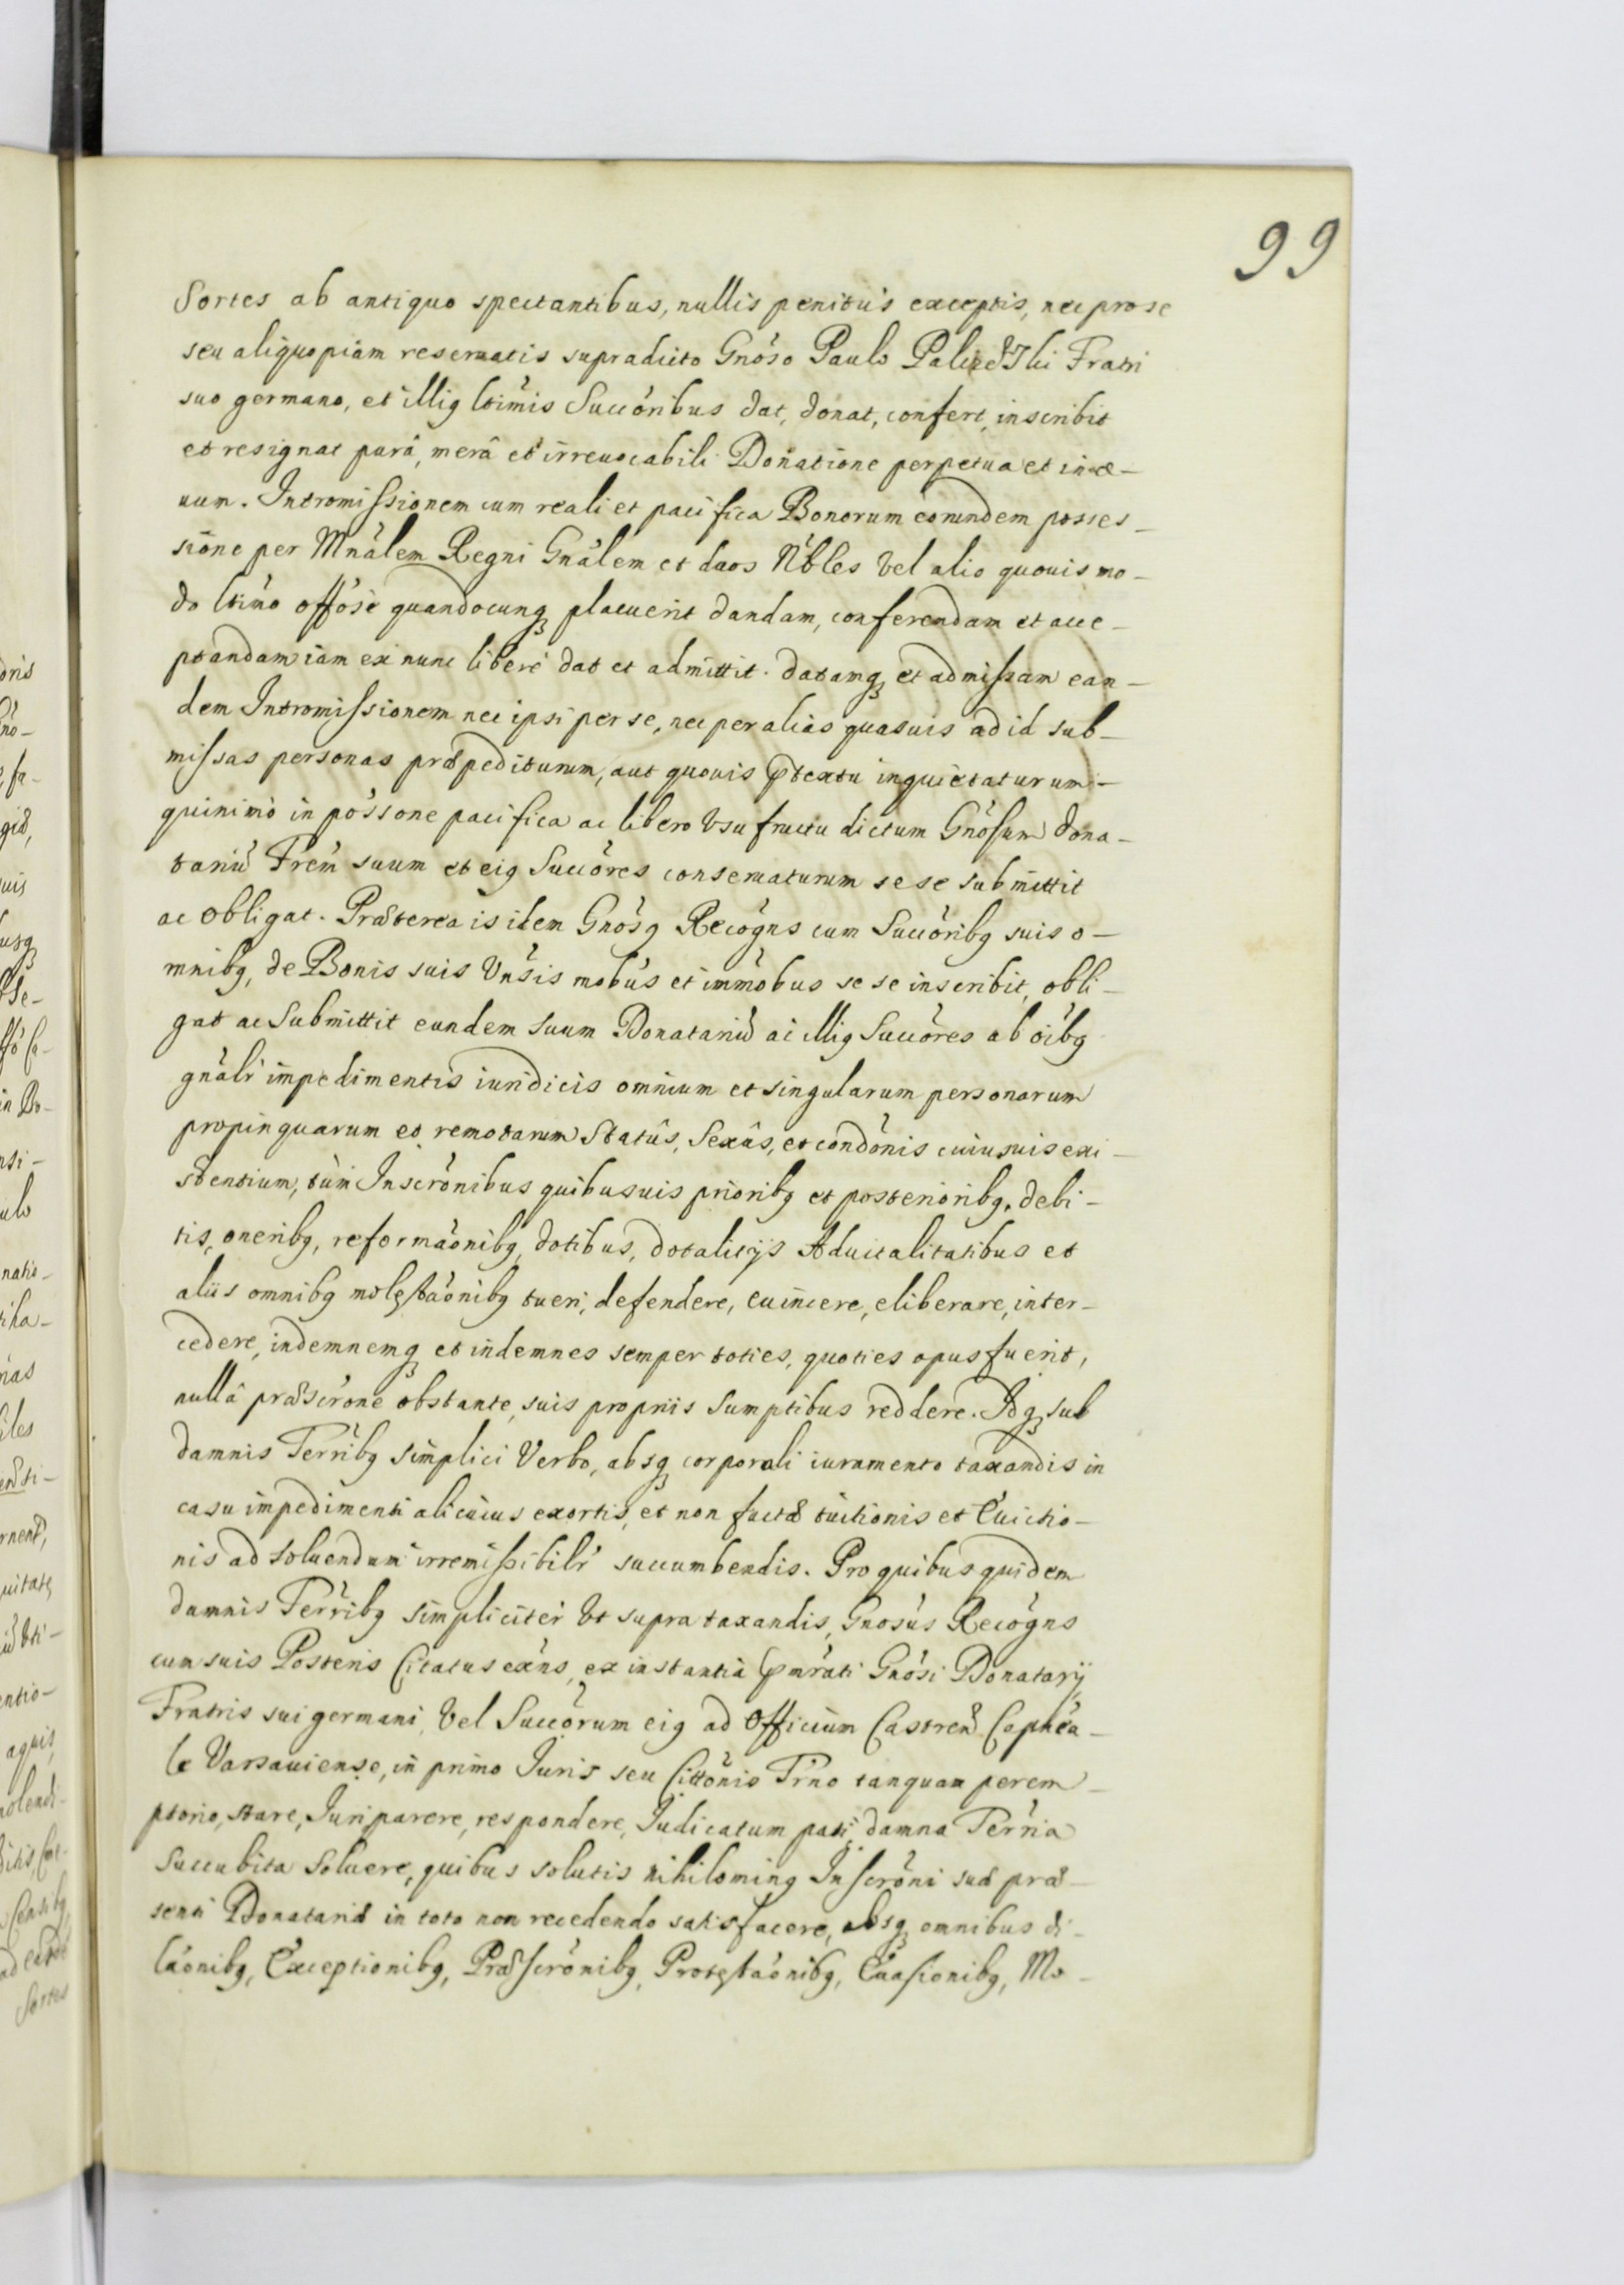 99
Sortes ab antiquo spectantibus, nullis penitùs exceptis, nec pro se
seu aliquopiam reseruatis supradicto Gnõso Paulo Fratri
suo germano, et illiq ltimis Succõribus dat, donat, confert, inscribit
et resignat purâ, merâ et irreuocabili Donatione perpetua et in æ-
uum. Intromissionem cum reali et pacifica Bonorum eorundem posses-
sione per Mnãlem Regni Gnãlem et duos Nbles vel alio quouis mo-
do ltimo offõse quandocunq placuerit dandam, conferendam et acce-
ptandam iam ex nunc liberè dat et admittit. datamq et admissam ean-
dem Intromissionem nec ipsi per se, nec per alias quasuis ad id sub-
missas personas præpediturum, aut quouis ptextu inquietaturum-
quinimò in possone pacifica ac libero Vsufructu dictum Gnõsum dona-
tariũ Frem suum et eiq Succõres conseruaturum sese submittit
ac obligat. Præterea is idem Gnõsq Recogns cum Succõribq suis o-
mnibq, de Bonis suis Vnsis mobus et immobus sese inscribit, obli-
gat ac Submittit eundem suum Donatariũ ac illiq Succõres ab oibq
gnãlr impedimentis iuridicis omnium et singularum personarum
propinquarum et remotarum Statûs, Sexûs, et condõnis cuiusuis exi-
stentium, tùm Inscrõnibus quibusuis prioribq et posterioribq, debi-
tis, oneribq, reformaõnibq, dotibus, dotalitijs Aduitalitatibus et
aliis omnibq molestaõnibq tueri, defendere, euincere, eliberare, inter-
cedere, indemnemq et indemnes semper toties, quoties opus fuerit,
nullâ præscrone obstante, suis propriis Sumptibus reddere. Idq sub
damnis Terribq simplici Verbo, absq corporali iuramento taxandis in
casu impedimenti alicuius exortis, et non factæ tuitionis et Euictio-
nis ad Soluendum irremissibilr succumbendis. Pro quibus quidem
damnis Terribq simpliciter Vt supra taxandis, Gnosus Recogns
cum suis Posteris Citatus exns, ex instantia pmrati Gnosi Donatarij
Fratris sui germani, Vel Succõrum eiq ad Officium Castren Capnea-
le Varsauiense, in primo Iuris seu Cittõnis Trno tanquam perem-
ptorio, stare, Iuri parere, respondere, Iudicatum pati, damna Terria
Succubita Soluere, quibus solutis nihilominq Inscrõni suæ præ-
senti Donatariæ in toto non recedendo satisfacere, absq omnibus di-
laõnibq, Exceptionibq, Præscrõnibq, Protestaõnibq, Euasionibq, Mo-